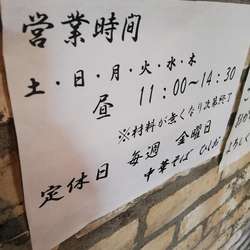 営業時間
土・日・月・火・水・木
昼 11:00〜14:30
※材料が無くなり次第終了
定休日 毎週 金曜日
中華そば ひらお